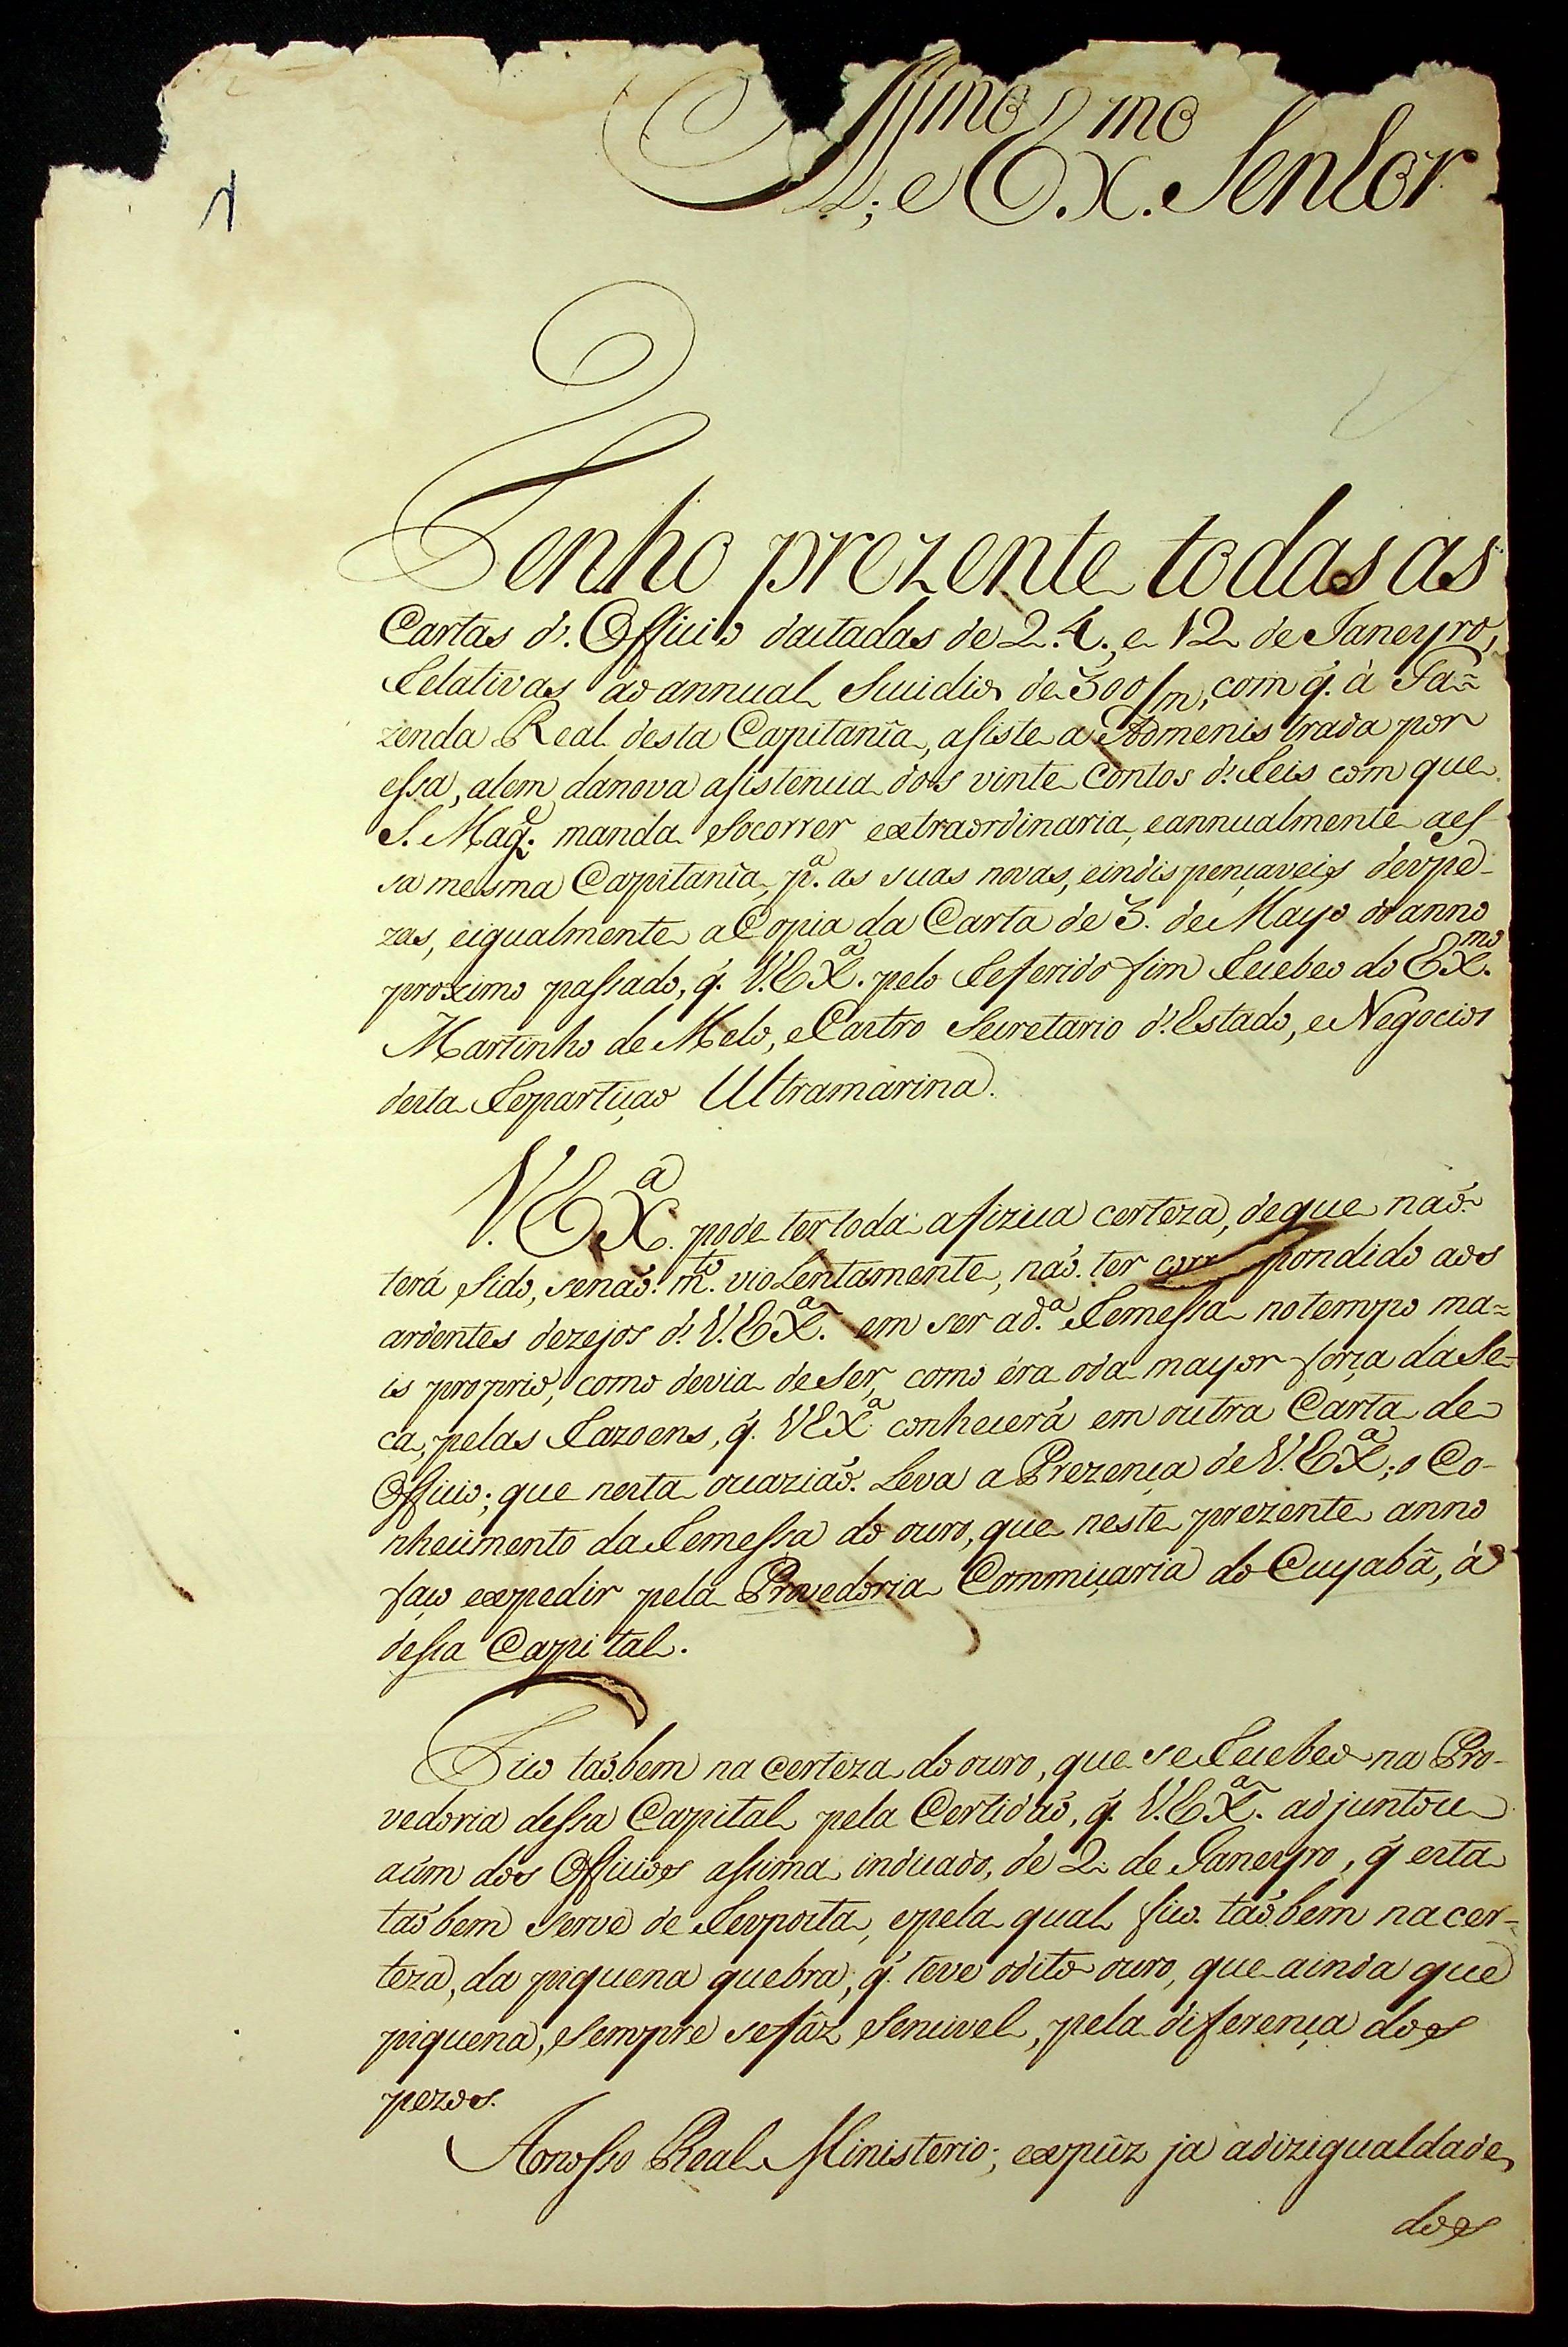 1
Ill.mo e Ex.mo Senhor
Tenho prezente todas as
Cartas d'. Officio dactadas de 2. 4., e 12 de Janeyro,
Relativas ao annual Sucidio de 300/m, com q̃. à Fa=
zenda Real desta Capitanîa, asiste a Admenistrada por
essa, alem danova asistencia dos vinte Contos d'. Reis com que
S. Mag.e manda Socorrer extraordinaria, eannualmente aes
sa mesma Capitanîa, p.a as suas novas, eindispençaveis despe-
zas, eigualmente aCopia da Carta de 3. de Mayo do anno
proximo passado, q̃. V.EX.a pelo Referido fim Recebeo do EX.mo
Martinho de Melo, eCastro Secretario d'. Estado, e Negocios
desta Repartiçao Ultramarina.
V.EX.a pode tertoda afizica certeza, deque naõ
terá Sido, senaõ m.to violentamente, naõ ter corr pondido aos
ardentes dezejos d'. V.EX.a em ser ad.a Remessa notempo ma=
is proprio, como devia deSer, como éra oda mayor força daSe-
ca, pelas Razoens, q̃. VEX.a conhecerá em outra Carta de
Officio; que nesta ocaziaõ Leva a Prezença de V.EX.a; o Co-
nhecimento da Remessa do ouro, que neste prezente anno
faço expedir pela Provedoria Commiçaria do Cuyabâ, à
dessa Capital.
Fico taõbem na certeza do ouro, que se Recebeo na Pro-
vedoria dessa Capital pela Certidaõ, q̃. V.EX.a adjuntou
aúm dos Officios assima indicado, de 2. de Janeyro, q̃ esta
taõbem serve de Resposta, epela qual fico taõbem na cer-
teza, da piquena quebra, q̃. teve odito ouro, que ainda que
piquena, Sempre sefâz Sencivel, pela diferença dos
pezos.
Aonosso Real Ministerio; expûz ja adizigualdade
dos